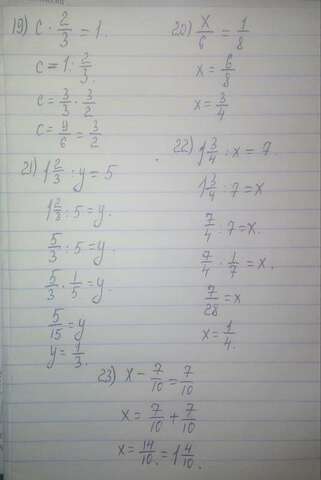 19) c · 2/3 = 1.
c = 1 · 2/3.
c = 3/3 · 3/2
c = 9/6 = 3/2
20) x/6 = 1/8
x = 6/8
x = 3/4
21) 1 2/3 : y = 5
1 2/3 : 5 = y.
5/3 : 5 = y.
5/3 · 1/5 = y.
5/15 = y
y = 1/3.
22) 1 3/4 : x = 7.
1 3/4 : 7 = x
7/4 : 7 = x.
7/4 · 1/7 = x.
7/28 = x
x = 1/4.
23) x - 7/10 = 7/10
x = 7/10 + 7/10
x = 14/10. = 1 4/10.